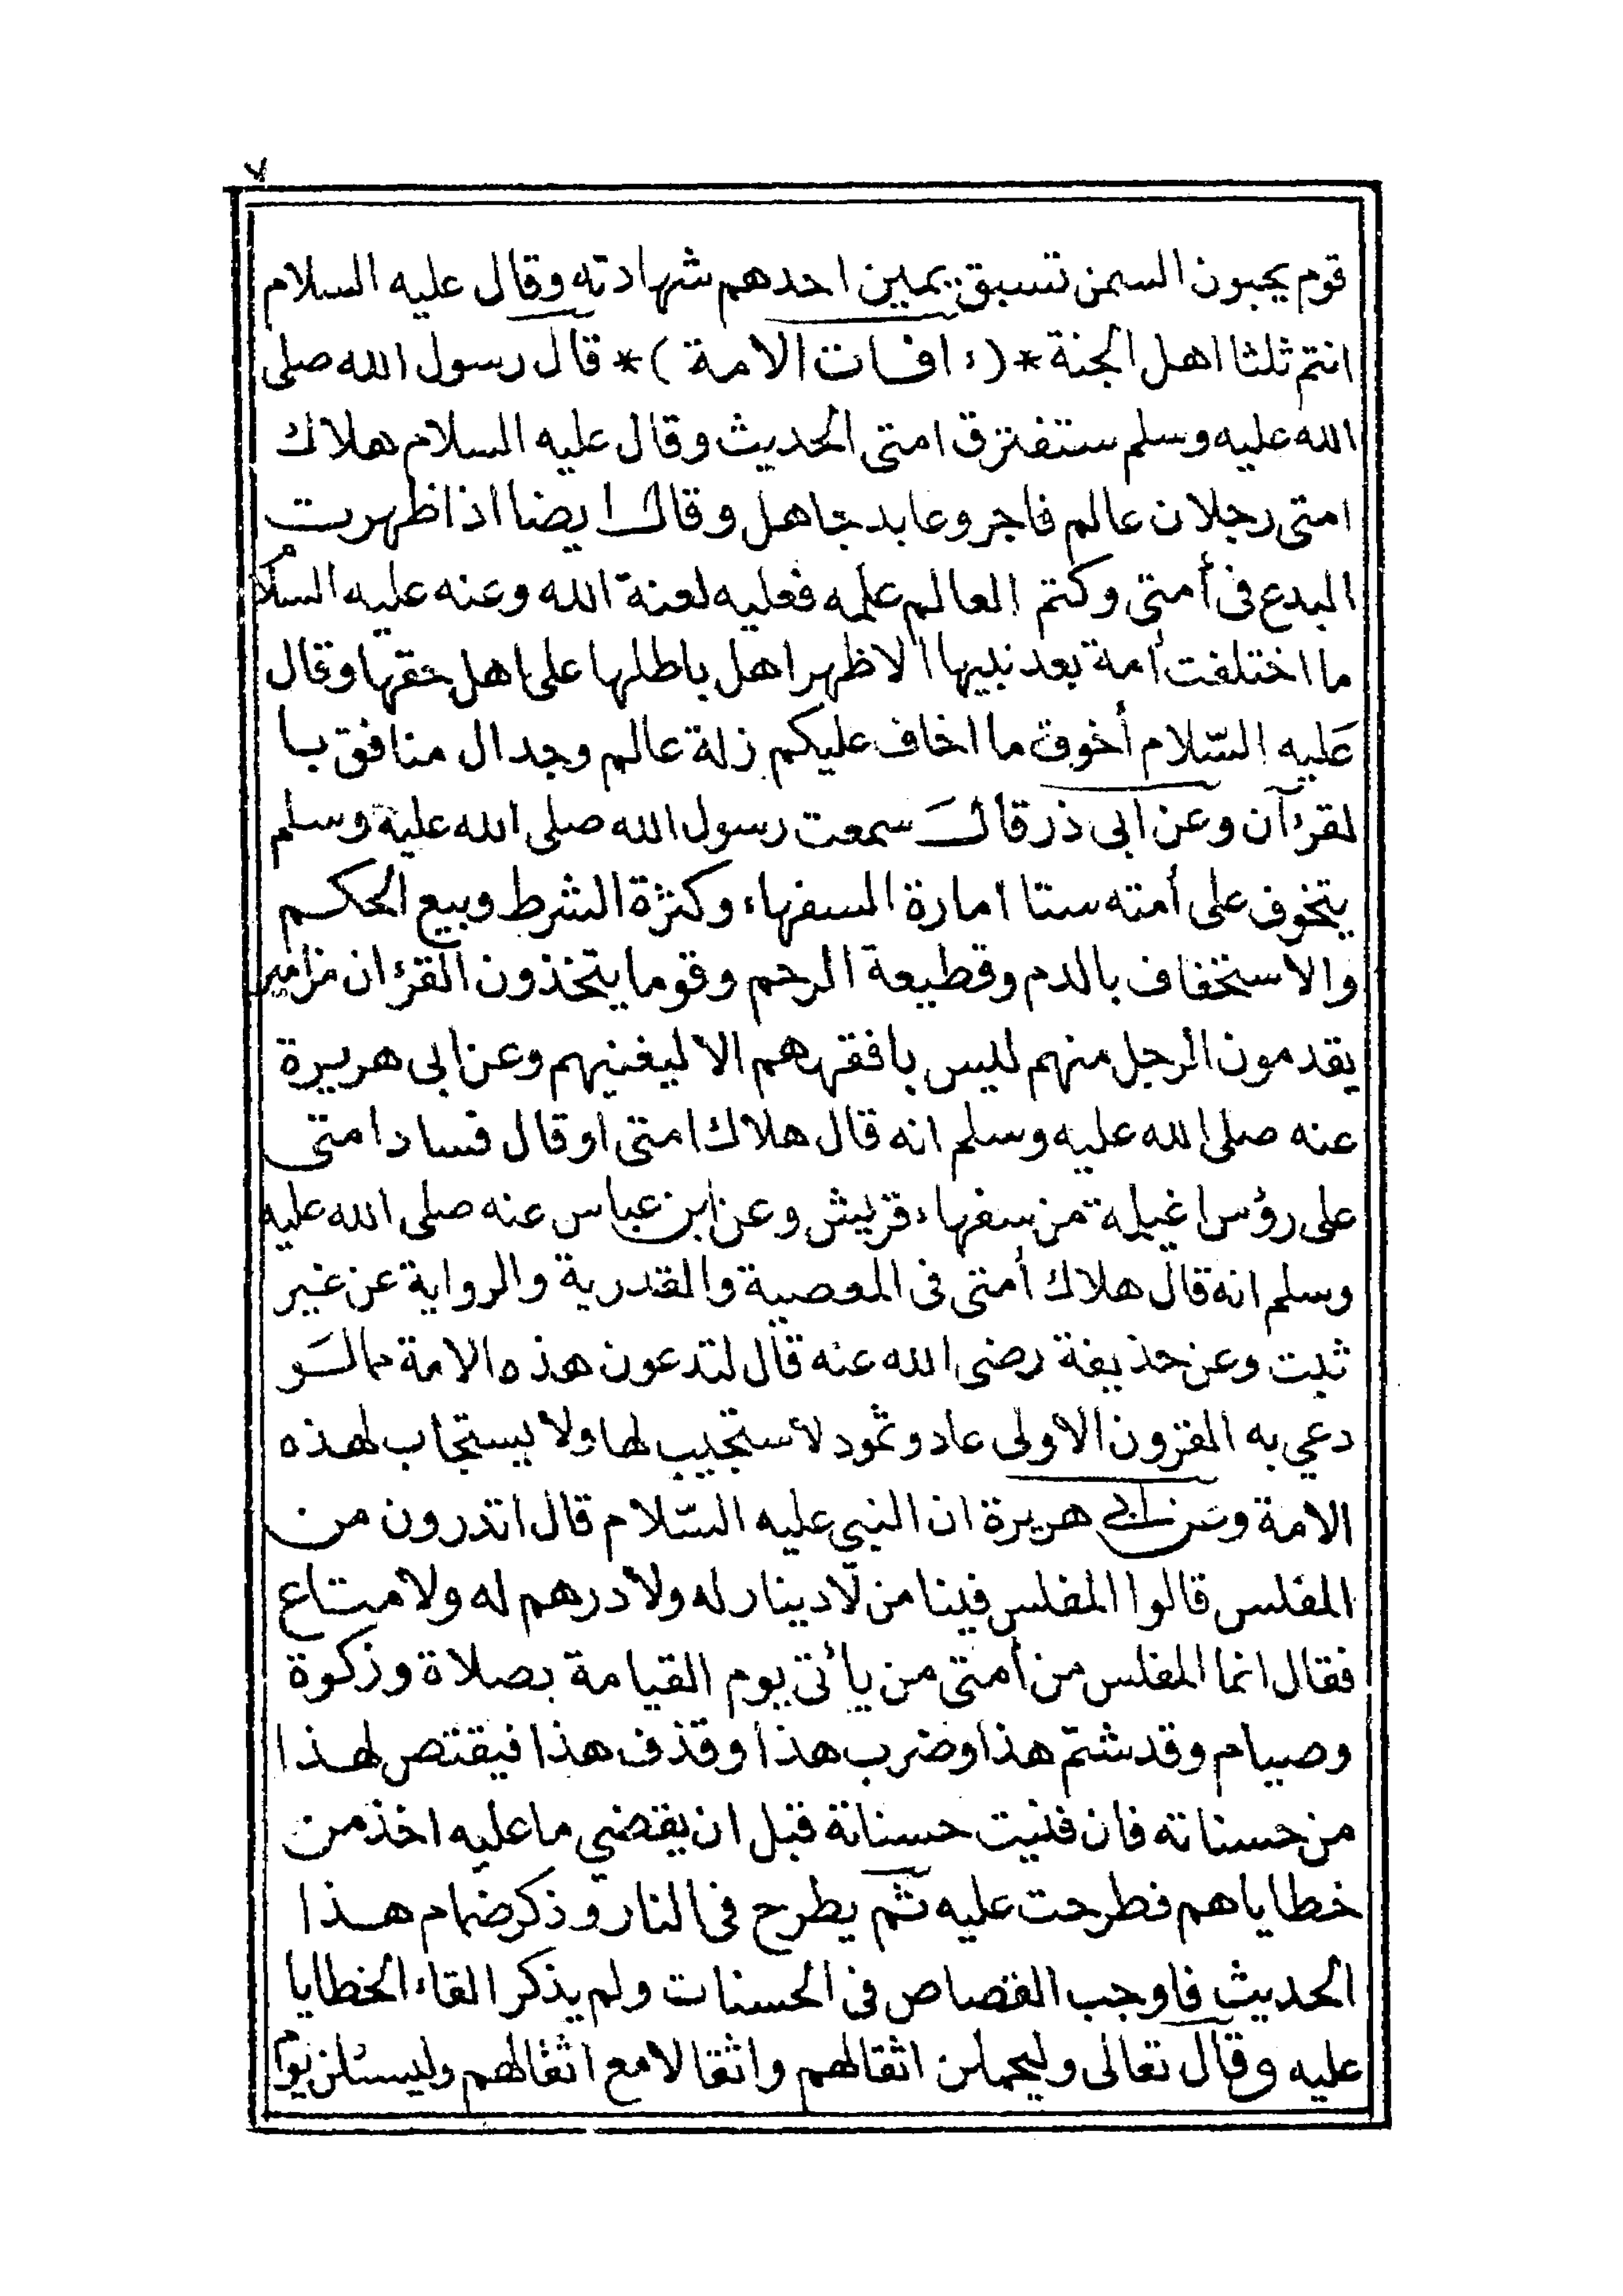 ٧
قوم يحبون السمن تسبق يمين احدهم شهادته وقال عليه السلام
انتم ثلثا اهل الجنة *(ءافات الامة)* قال رسول الله صلى
الله عليه وسلم ستفترق امتى الحديث وقال عليه السلام هلاك
امتى رجلان عالم فاجر وعابد جاهل وقال ايضا اذا ظهرت
البدع فى أمتى وكتم العالم علمه فعليه لعنة الله وعنه عليه السلام
ما اختلفت أمة بعد نبيها الا ظهر اهل باطلها على اهل حقها وقال
عَليه السّلام أخوف ما اخاف عليكم زلة عالم وجدال منافق با
لقرءآن وعن ابى ذر قال سمعت رسول الله صلى الله عليه وسلم
يتخوف على أمته ستا امارة السفهاء وكثرة الشرط وبيع الحكم
والاستخفاف بالدم وقطيعة الرحم وقوما يتخذون القرءان مزامير
يقدمون الرجل منهم ليس بافقههم الا ليغنيهم وعن ابى هريرة
عنه صلى الله عليه وسلم انه قال هلاك امتى او قال فساد امتى
على رؤس اغيلة من سفهاء قريش وعن ابن عباس عنه صلى الله عليه
وسلم انه قال هلاك أمتى فى المعصية والقدرية والرواية عن غير
ثبت وعن حذيفة رضى الله عنه قال لتدعون هذه الامة بمالَو
دعي به القرون الاولى عاد وثمود لأستجيب لها ولا يستجاب لهذه
الامة وعن ابي هريرة ان النبي عليه السّلام قال اتدرون من
المفلس قالوا المفلس فينا من لّا دينار له ولا درهم له ولا متاع
فقال انما المفلس من أمتى من يأتى يوم القيامة بصلاة وزكوة
وصيام وقد شتم هذا وضرب هذا وقذف هذا فيقتص لهذا
من حسناته فان فنيت حسناتة قبل ان يقضي ما عليه اخذ من
خطاياهم فطرحت عليه ثم يطرح فى النار وذكر ضمام هذا
الحديث فاوجب القصاص فى الحسنات ولم يذكر القاء الخطايا
عليه وقال تعالى وليحملن اثقالهم واثقالا مع اثقالهم وليسئلن يوم